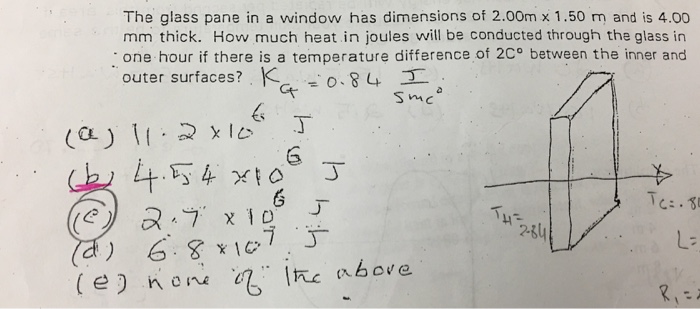 The glass pane in a window has dimensions of 2.00m x 1.50 m and is 4.00
mm thick. How much heat in joules will be conducted through the glass in
one hour if there is a temperature difference of 2C° between the inner and
outer surfaces? K_G = 0.84 J / smc°
(a) 11.2 x 10^6 J
(b) 4.54 x 10^6 J
(c) 2.7 x 10^6 J
(d) 6.8 x 10^7 J
(e) none of the above
T_H = 2.84
T_C = .8
L =
R_1 =